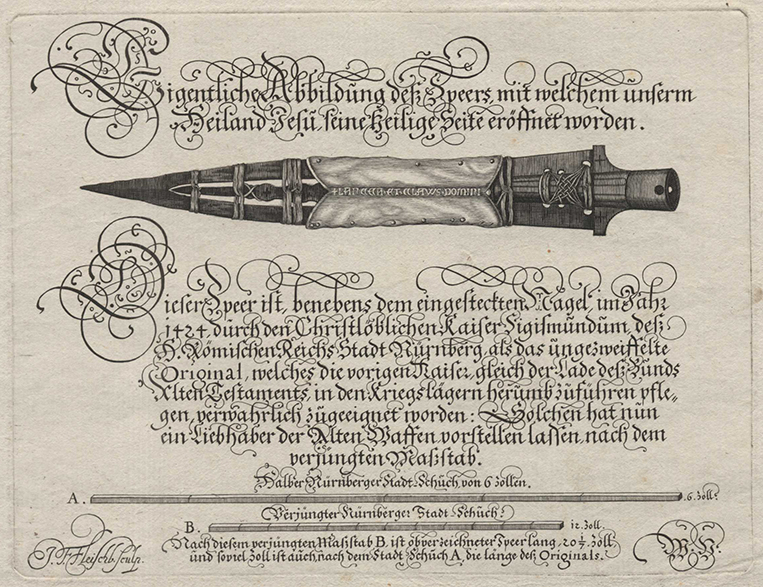 Eigentliche Abbildung deß Speers, mit welchem unserm
Heiland Jesu, seine Heilige Seite eröffnet worden.
+LANCEA ET CLAWS DOMINI
Dieser Speer ist, benebens dem eingesteckten Nagel, im Jahr
1424. durch den Christlöblichen Kaiser Sigismundum, deß
H. Römischen Reichs Stadt Nürnberg, als das ungezweiffelte
Original, welches die vorigen Kaiser, gleich der Lade deß Bunds
Alten Testaments, in den Kriegslägern herumb zuführen pfle-
gen, verwahrlich zugeeignet worden: Solchen hat nun
ein Liebhaber der Alten Waffen vorstellen lassen, nach dem
verjüngten Maßstab.
Halber Nürnberger Stadt Schuch, von 6 zollen.
A. 6. Zoll.
Verjüngter Nürnberger Stadt Schuch.
B. 12. Zoll.
Nach diesem verjüngten Maßstab B. ist obverzeichneter Speer lang, 20 ½. Zoll
und soviel Zoll ist auch, nach dem Stadt Schuch A. die länge deß Originals.
J. F. Fleischb. sculp.